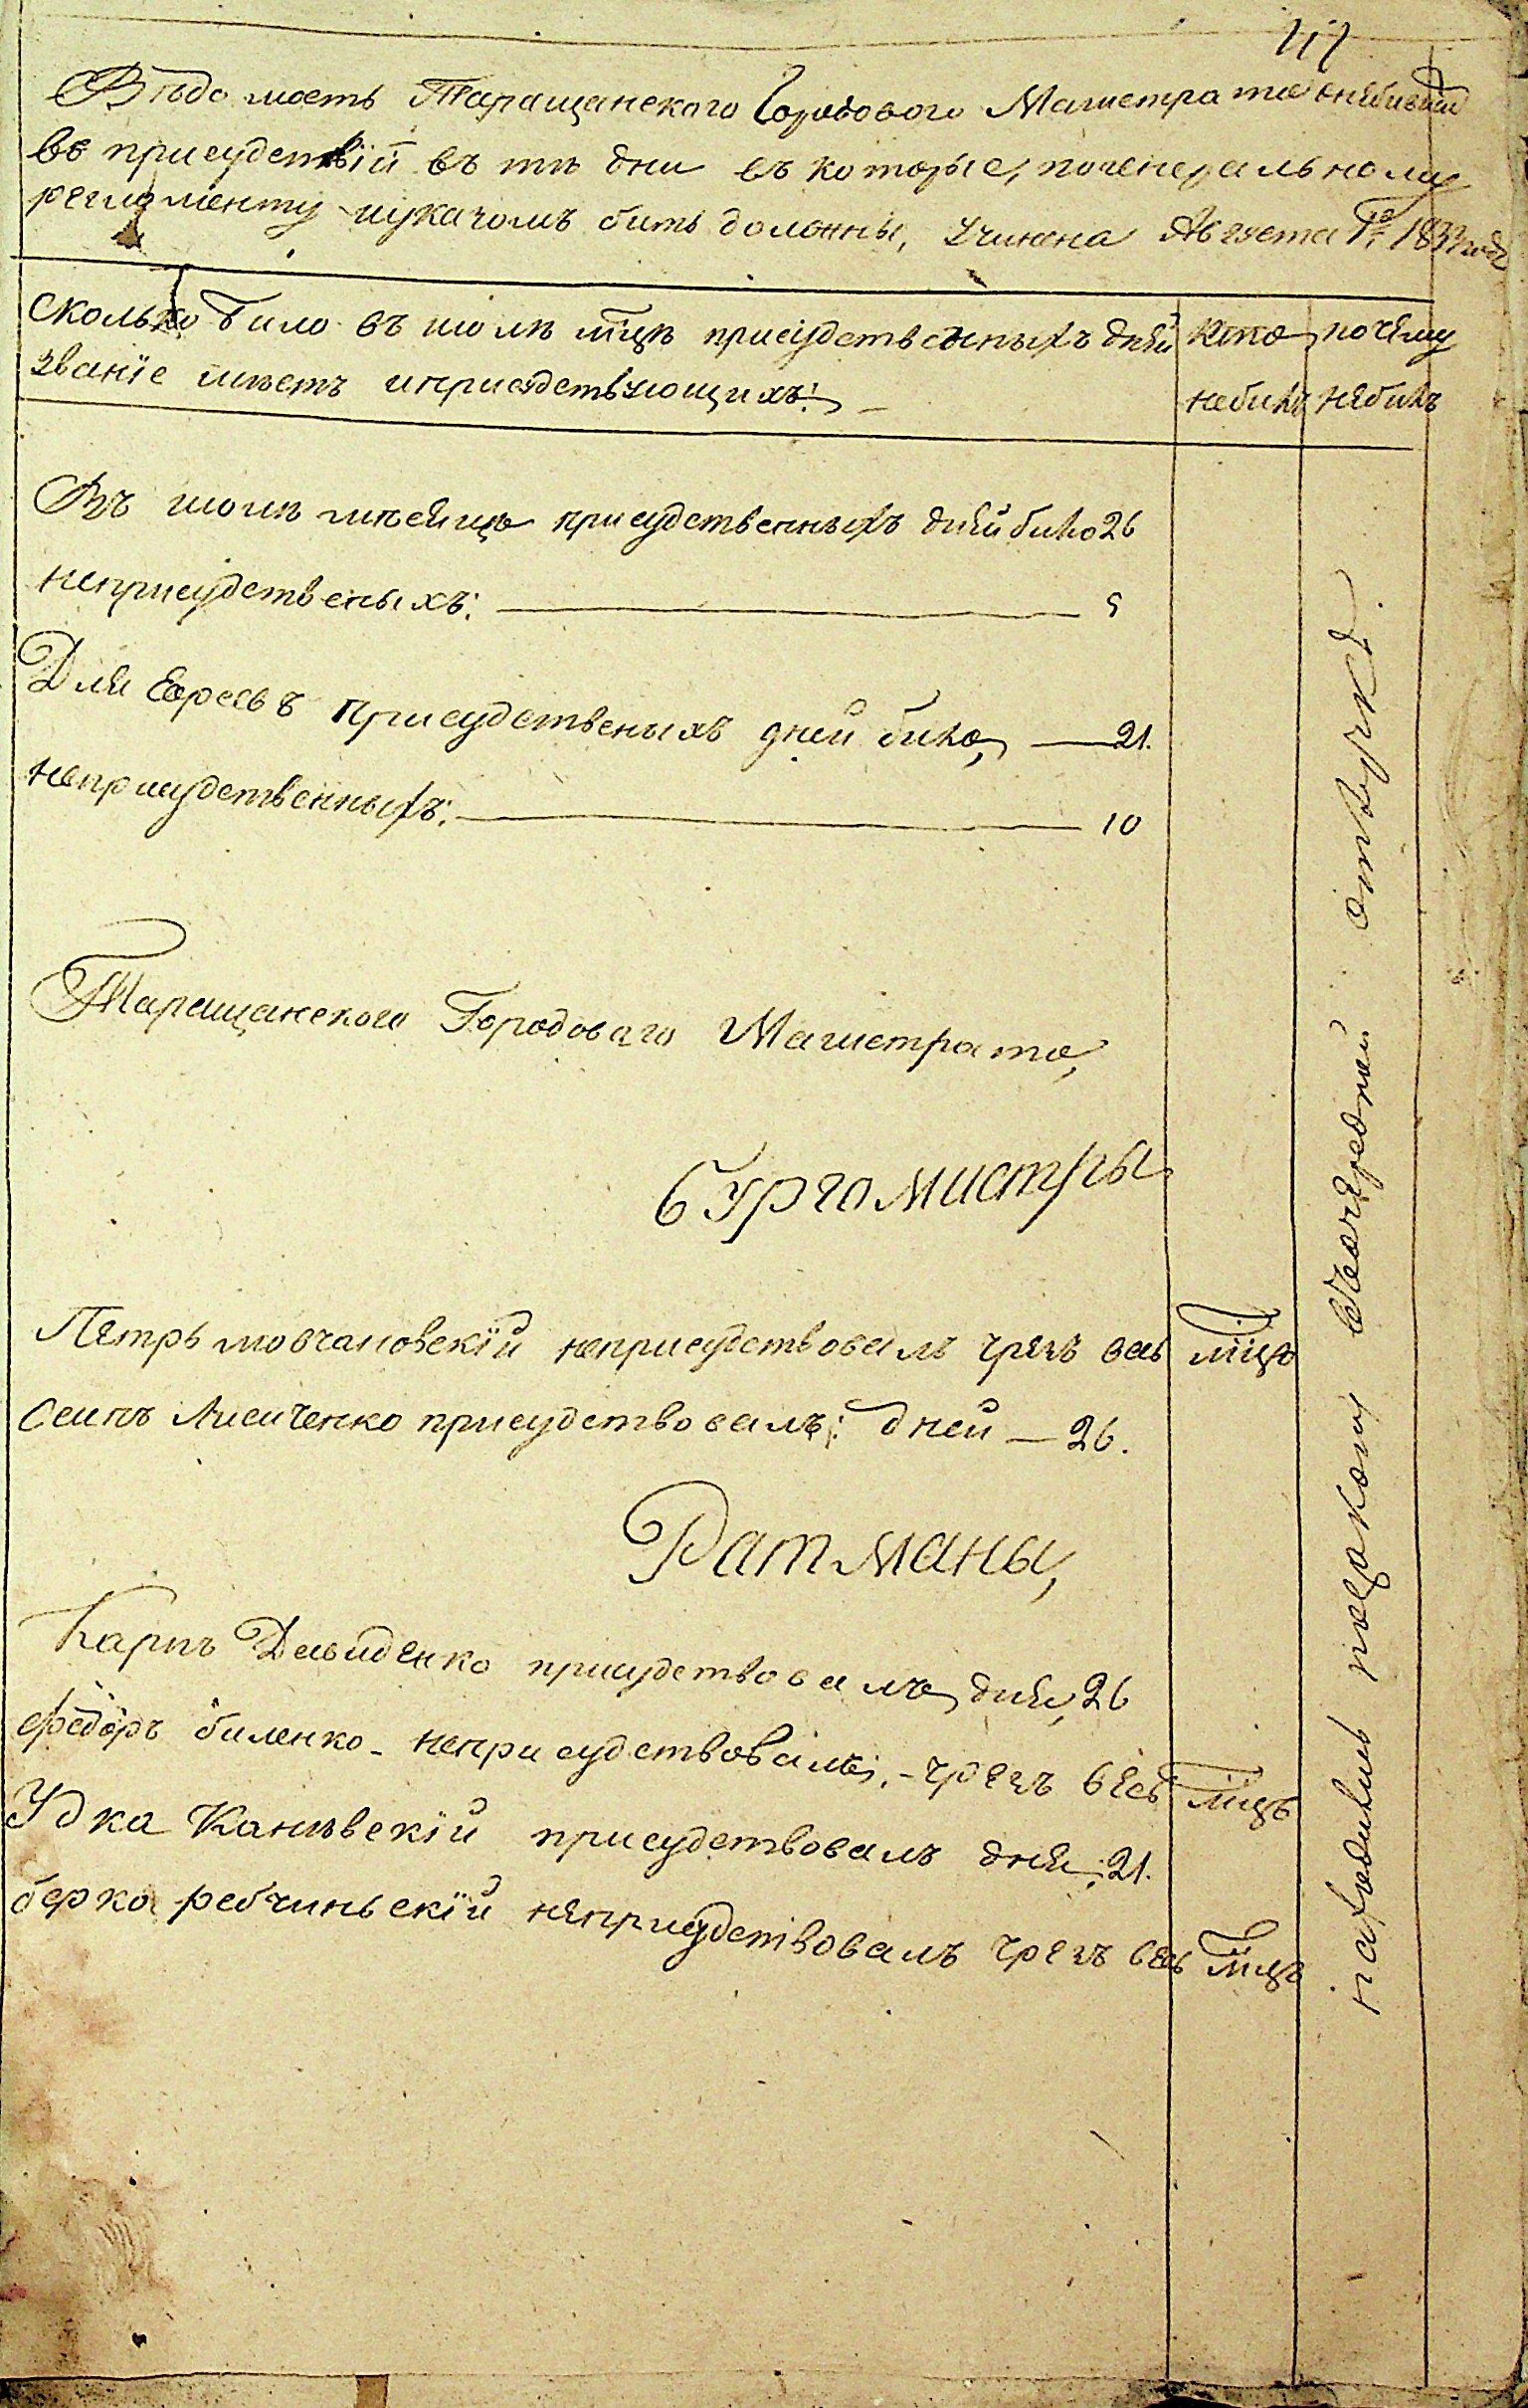 117
Вѣдомость Таращанского Городового Магистрата о небивши
въ присудствій въ тѣ дни въ которые, по генеральному
регламенту и указомъ бить должны, Учинена Августа 1го
Сколько било въ июлѣ мцѣ присудственыхъ дней
званіе имѣетъ и присудствующихъ:
кто
небилъ
почему
небилъ
Въ июлѣ мѣсяцѣ присудственныхъ дней било 26
неприсудственыхъ: 5
Для Евреевъ присудственыхъ дней било, 21.
неприсудственныхъ: 10
Таращанского Городоваго Магистрата,
Бургомистры
Петръ мовчановскій неприсудствовалъ чрезъ весь мцъ
Осипъ Лисиченко присудствовалъ: дней — 26.
Ратманы,
Карпъ Давиденко присудствовалъ, дней, 26
федоръ биленко - неприсудствовалъ, - чрезъ весь мцъ
Удка Каневскій присудствовалъ дней, 21.
берко ребчиньскій неприсудствовалъ чрезъ весь мцъ
находились по очередной отлучкѣ